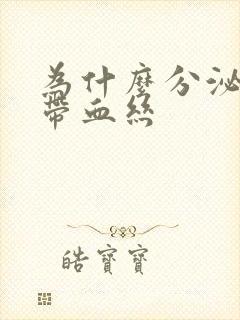 為什麼分泌
帶血絲
皓寶寶